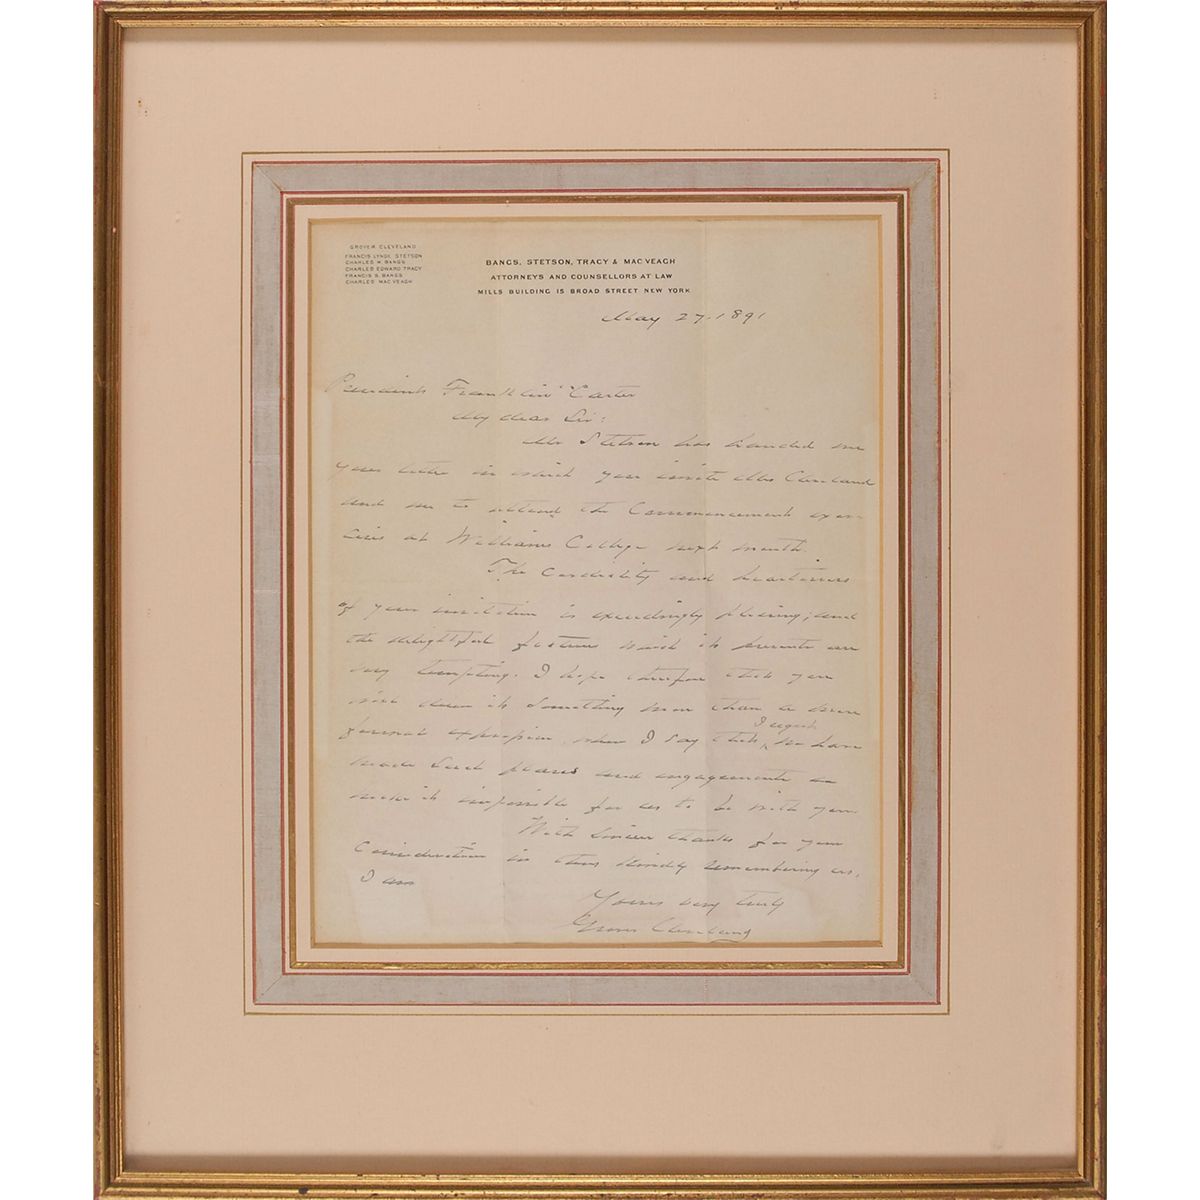 GROVER CLEVELAND
FRANCIS LYNDE STETSON
CHARLES W. BANGS
CHARLES EDWARD TRACY
FRANCIS S. BANGS
CHARLES MAC VEAGH
BANGS, STETSON, TRACY & MAC VEAGH
ATTORNEYS AND COUNSELLORS AT LAW
MILLS BUILDING 15 BROAD STREET NEW YORK
May 27. 1891
President Franklin Carter
My dear Sir:
Mr Stetson has handed me
your note in which you invite Mrs Cleveland
and me to attend the Commencement exer-
cises at Williams College next month.
The cordiality and heartiness
of your invitation is exceedingly pleasing; and
the delightful features which it presents are
very tempting. I hope therefore that you
will deem it something more than a mere
formal expression, when I say that I regret we have
made such plans and engagements as
make it impossible for us to be with you.
With sincere thanks for your
consideration in thus kindly remembering us,
I am
Yours very truly
Grover Cleveland